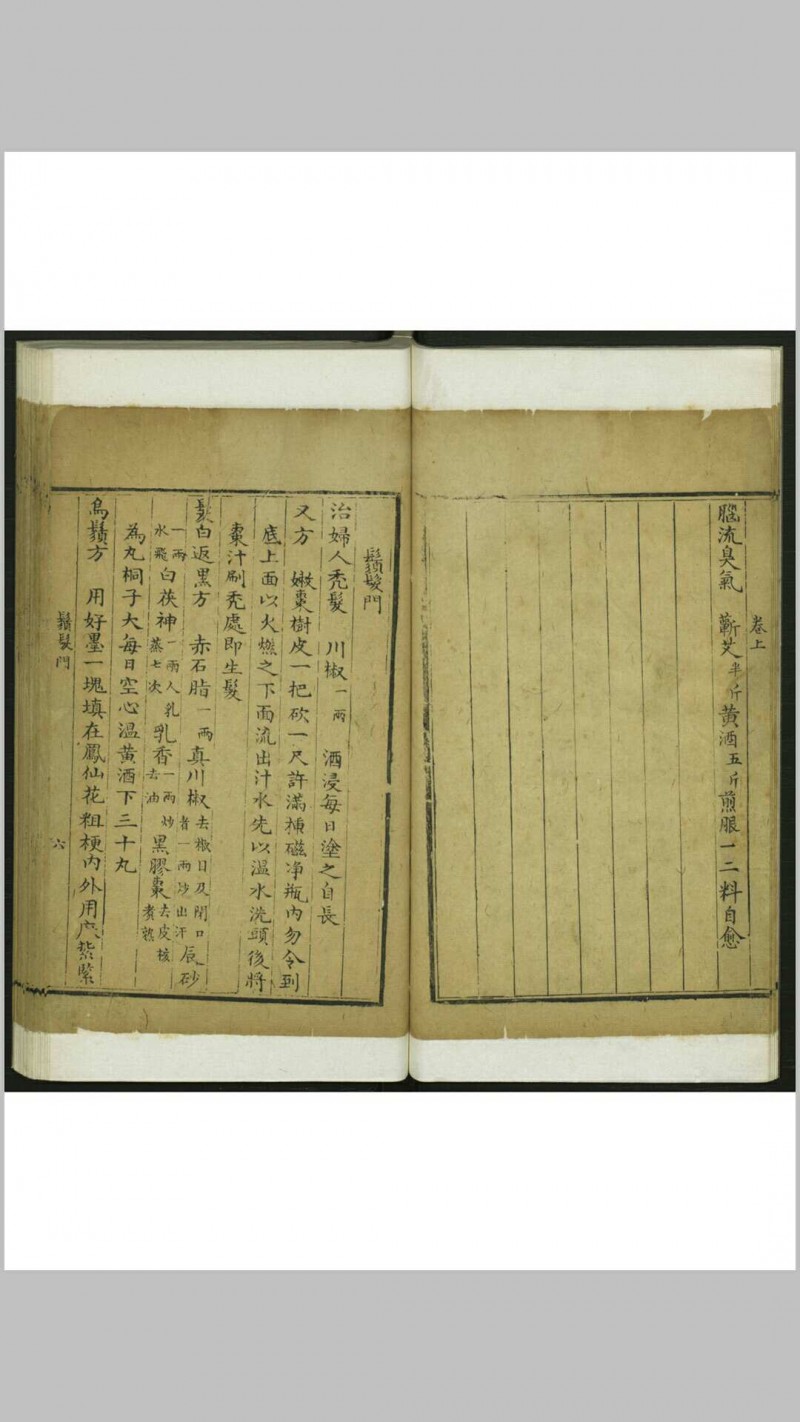 卷上
腦流臭氣　蘄艾半斤黃酒五斤煎服一二料自愈
鬚髮門
治婦人禿髮　川椒一兩　酒浸每日塗之自長
又方　嫩棗樹皮一把砍一尺許滿揷磁净瓶內勿令到
底上面以火燃之下面流出汁水先以溫水洗頭後將
棗汁刷禿處即生髮
髮白返黑方　赤石脂一兩真川椒去椒目及閉口者一兩炒出汗辰砂
一兩水飛白茯神一兩人乳蒸七次乳香一兩炒去油黑膠棗去皮核煮熟
為丸桐子大每日空心溫黃酒下三十丸
烏鬚方　用好墨一塊填在鳳仙花粗梗內外用紮緊
鬚髮門
六